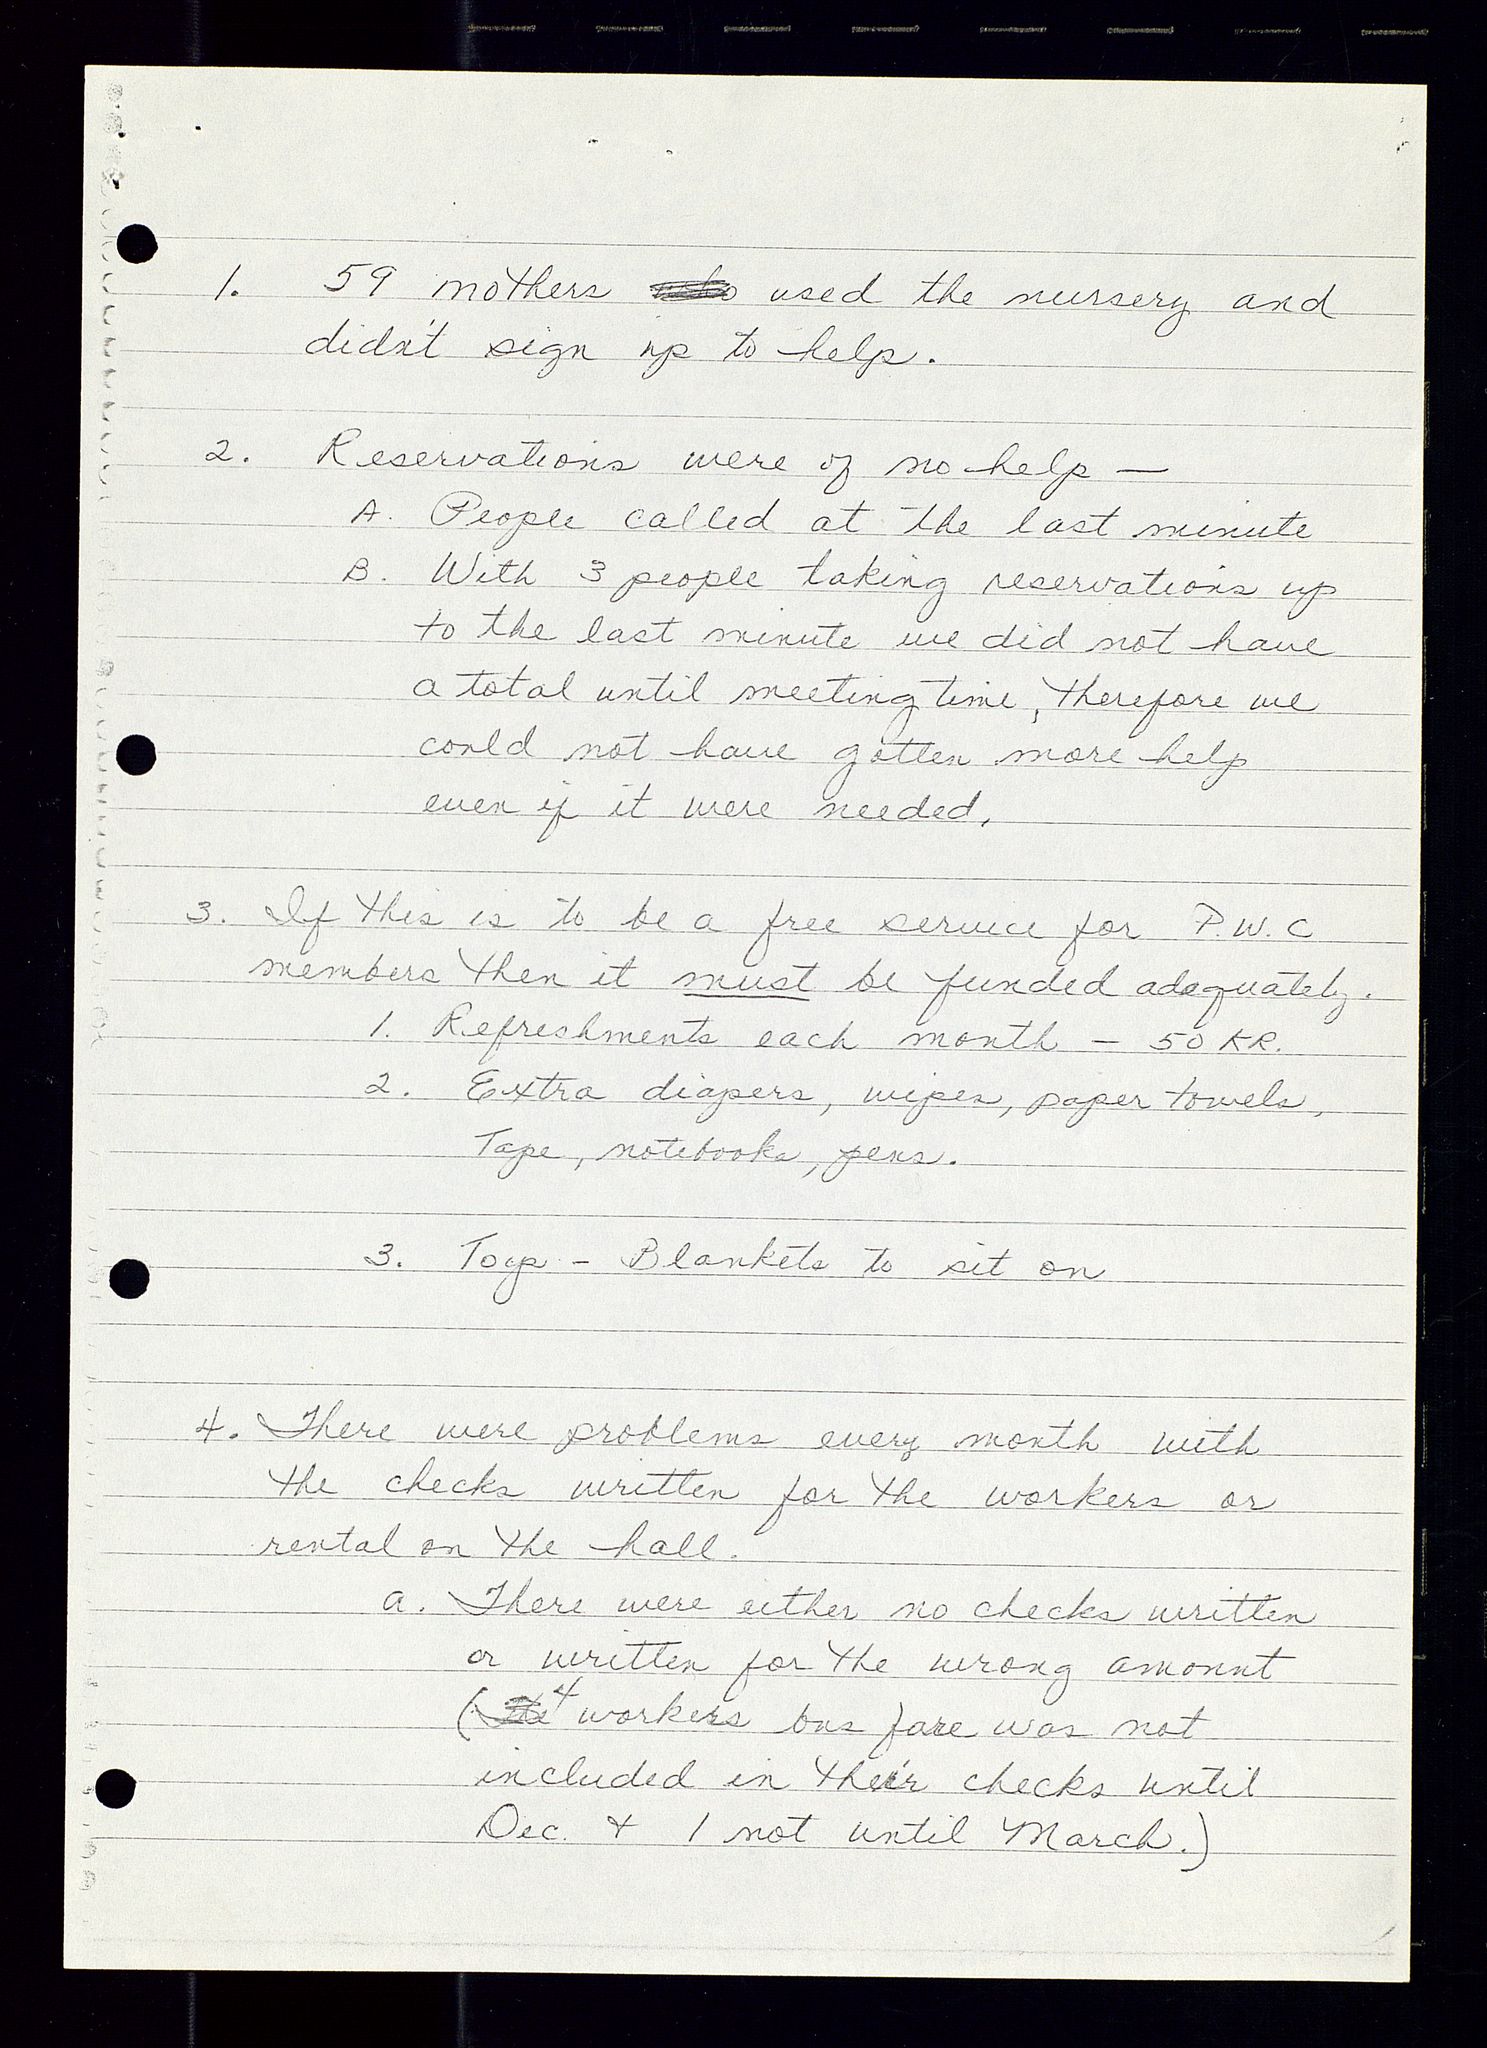 1. 59 mothers used the nursery and
didn't sign up to help.
2. Reservations were of no help —
A. People called at the last minute
B. With 3 people taking reservations up
to the last minute we did not have
a total until meeting time, therefore we
could not have gotten more help
even if it were needed.
3. If this is to be a free service for P.W.C
members then it must be funded adequately.
1. Refreshments each month — 50 KR.
2. Extra diapers, wipes, paper towels,
Tape, notebooks, pens.
3. Toys - Blankets to sit on
4. There were problems every month with
the checks written for the workers or
rental on the hall.
a. There were either no checks written
or written for the wrong amount
(4 workers bus fare was not
included in their checks until
Dec. + 1 not until March.)